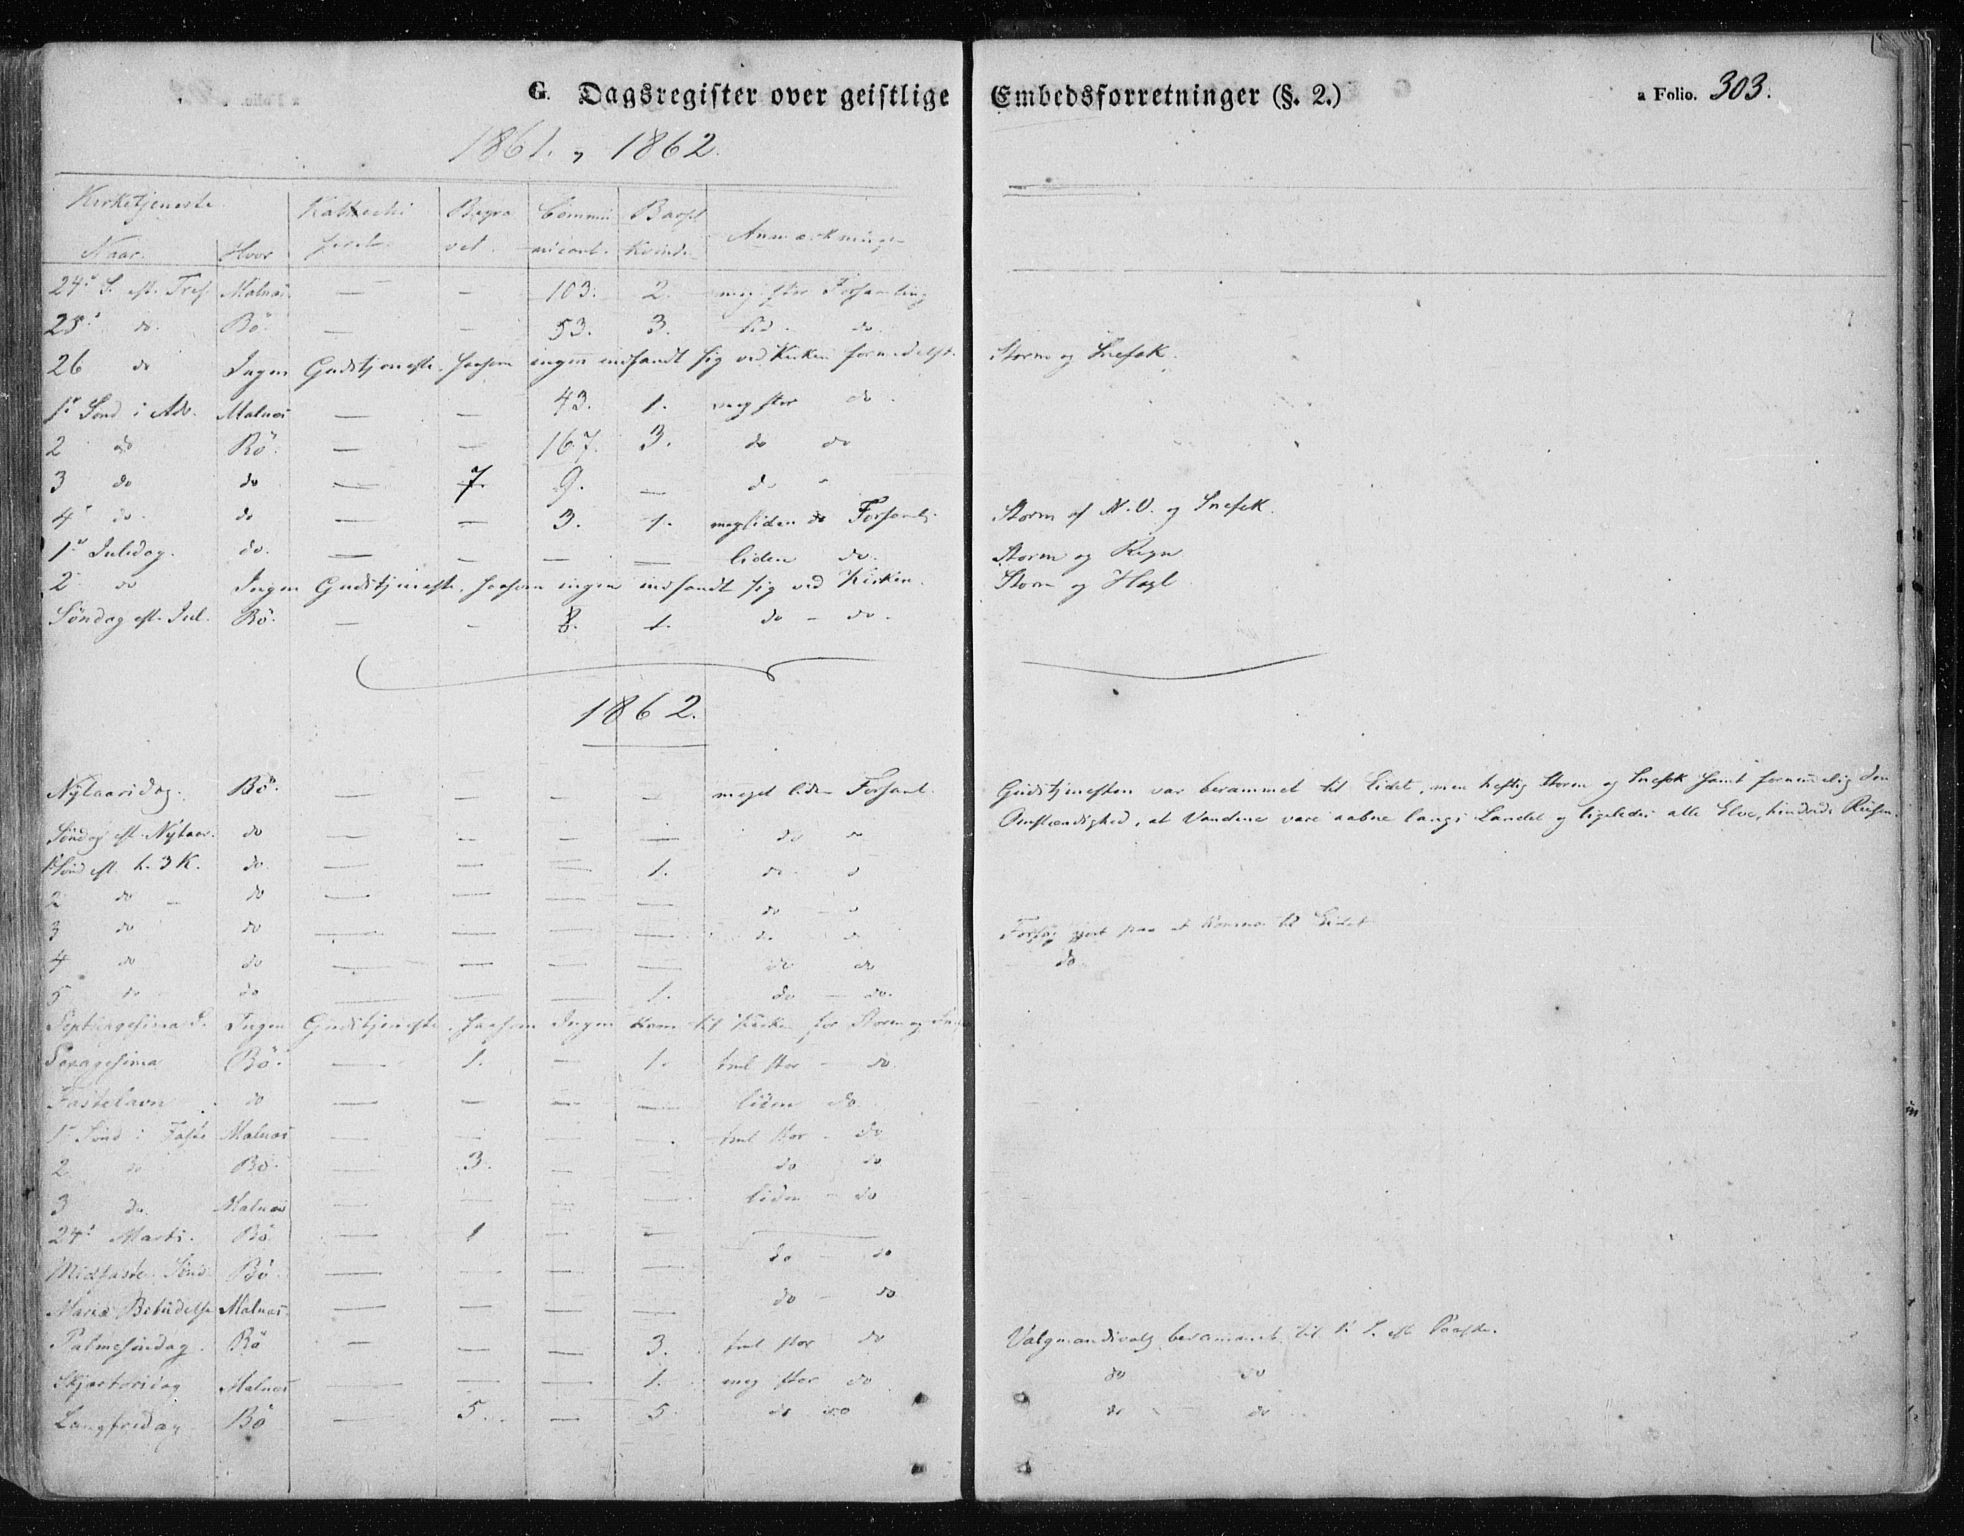 G. Dagsregister over geistlige Embedsforretninger (§. 2.) a Folio. 303.
1861. , 1862.
Kirketjeneste. Begra Commu Barsl
Naar. Hvor vet. nicant. Kvinde Anmærkninger
24d S. eft. Tref. Malnæs — — 103. 2. meg stor Forsamling
25d do. Bö. — — 53. 3. lid. do.
26 do Ingen Gudstjeneste, saasom ingen indfandt sig ved Kirken formedelst Storm og Snefok.
1ste Sönd i Adv. Malnæs — — 43. 1. meg stor do.
2 do Bö. — — 167. 3. do do
3 do do — 7. 9. — do "
4d do. do — — 3. 1. meg liden Forsaml. Storm af N. O. og Snefok.
1ste Juledag. do. — — — — liden do. Storm og Regn
2 do Ingen Gudstjeneste, saasom ingen indfandt sig ved Kirken. Storm og Hagl
Söndag eft. Jul. Bö. — — 8. 1. do — do.
1862.
Nytaarsdag. Bö. — — — — meget liden Forsaml. Gudstjenesten var berammet til Eidet, men heftig Storm og Snefok samt fornemmelig den
Omstændighed, at Vandene vare aabne langs Landet og ligeledes alle Elve, hindrede Reisen.
Söndag eft. Nytaar. do — — — — do do
1 Sönd eft h. 3 K. do. — — — 1. do. do
2 do — do — — — — do — do
3 do do — — — — do. do Forsög gjort paa at komme til Eidet
4 do do — — — — do. do do.
5 do do — — — 1. do — do.
Septuagesima S. Ingen Gudstjeneste, saasom Ingen kom til Kirken for Storm og
Sexagesima Bö. — 1. — 1. tml stor — do.
Fastelavn do — — — — liden do.
1ste Sönd i Faste Malnæs — — — — tml stor — do
2 do Bö. — 3. — — do do
3 do. Malnæs — — — — liden — do
24d Marts. Bö — 1 — — —
Midfaste Sönd. Bö. — — — — do — do
Mariæ Bebudelse Malnæs. — — — — do — do
Palmesöndag. Bö — — — 3. tml stor do Valgmandsvalg berammet til 1 S. eft Paaske.
Skjærtorsdag Malnæs — — — 1. meg stor do do do
Langfredag Bö — 5. — 5 do do do do